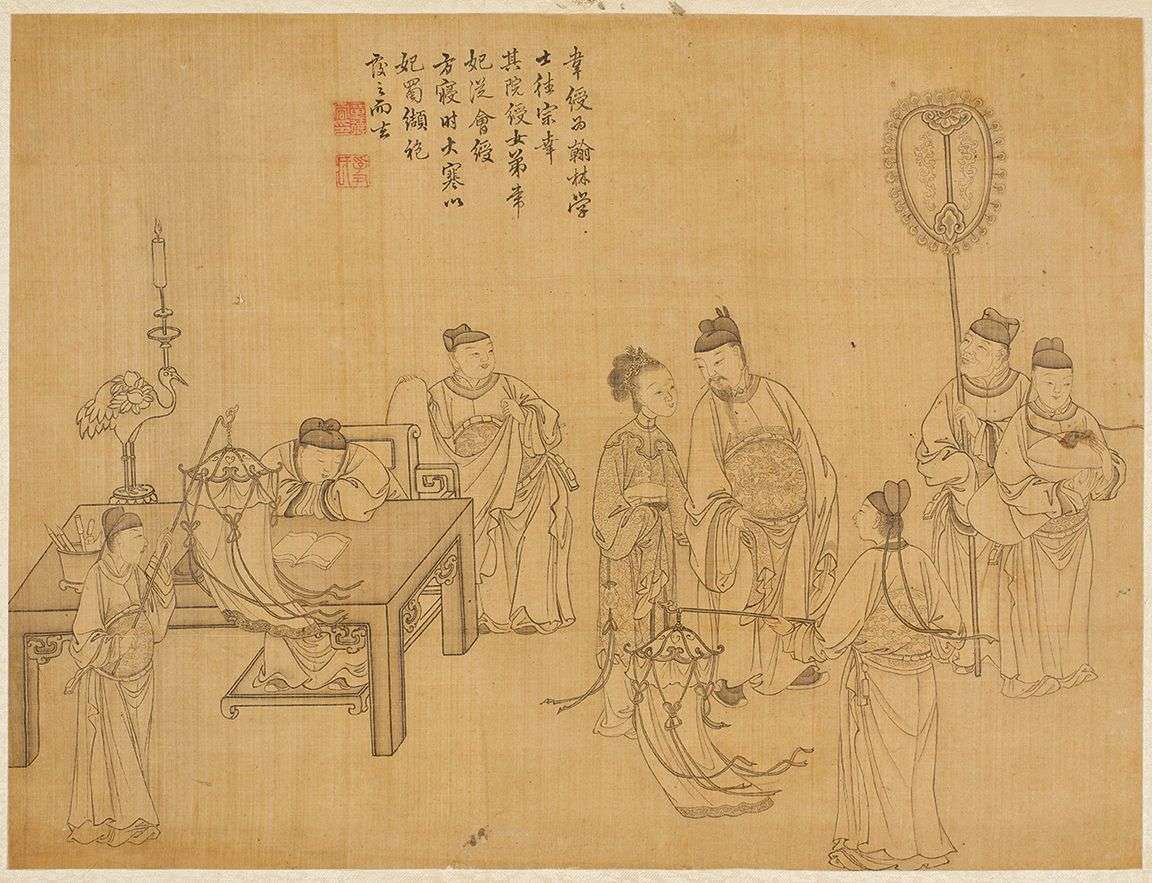 韋綬为翰林学
士徳宗幸
其院綬女弟韋
妃從會綬
方寢时大寒以
妃蜀纈袍
覆之而去